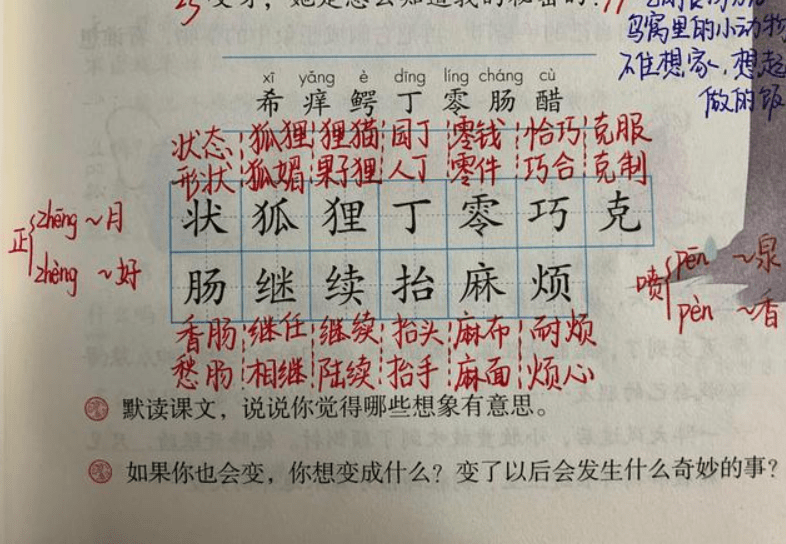 变牙，她是怎么知道我的秘密的？
窝里的小动物
不住想家、想起
做的饭
xī yǎng è dīng líng cháng cù
希痒鳄丁零肠醋
状态 狐狸 狸猫 园丁 零钱 恰巧 克服
形状 狐媚 果子狸 人丁 零件 巧合 克制
状狐狸丁零巧克
正 zhēng ~月
zhèng ~好
肠继续抬麻烦
喷 pēn ~泉
pèn ~香
香肠 继任 继续 抬头 麻布 耐烦
愁肠 相继 陆续 抬手 麻面 烦心
默读课文，说说你觉得哪些想象有意思。
如果你也会变，你想变成什么？变了以后会发生什么奇妙的事？